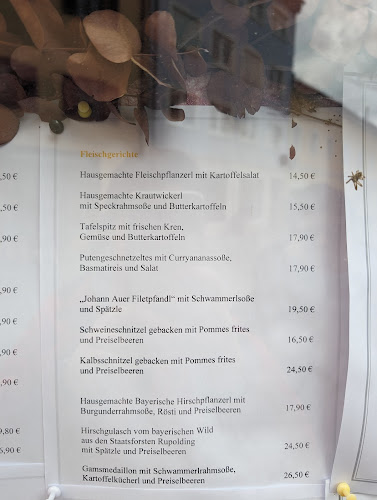 Fleischgerichte
Hausgemachte Fleischpflanzerl mit Kartoffelsalat 14,50 €
Hausgemachte Krautwickerl
mit Speckrahmsoße und Butterkartoffeln 15,50 €
Tafelspitz mit frischen Kren,
Gemüse und Butterkartoffeln 17,90 €
Putengeschnetzeltes mit Curryananassoße,
Basmatireis und Salat 17,90 €
„Johann Auer Filetpfandl" mit Schwammerlsoße
und Spätzle 19,50 €
Schweineschnitzel gebacken mit Pommes frites
und Preiselbeeren 16,50 €
Kalbsschnitzel gebacken mit Pommes frites
und Preiselbeeren 24,50 €
Hausgemachte Bayerische Hirschpflanzerl mit
Burgunderrahmsoße, Rösti und Preiselbeeren 17,90 €
Hirschgulasch vom bayerischen Wild
aus den Staatsforsten Rupolding
mit Spätzle und Preiselbeeren 24,50 €
Gamsmedaillon mit Schwammerlrahmsoße,
Kartoffelkücherl und Preiselbeeren 26,50 €
,50 €
,50 €
,90 €
,90 €
,90 €
,90 €
,90 €
9,80 €
6,90 €